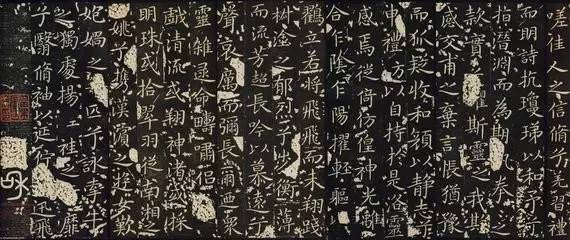 嗟佳人之信脩兮羌習禮
而明詩抗瓊珶以和予
指潛淵而為期拳之
款實斯靈之我欺
感交甫之棄言悵猶豫
而狐疑收和顏以靜志兮
申禮防以自持於是洛靈
感焉徙倚彷徨神光離
合乍陰乍陽擢輕軀以
鸖立若將飛飛而未翔踐
椒塗之郁烈兮步衡薄
而流芳超長吟以慕遠兮
聲哀厲而彌長爾迺眾
靈雜遝命疇嘯侶
戲清流或翔神渚或採
明珠或拾翠羽從南湘之
姚兮攜漢濱之遊女歎
媧之匹兮詠牽牛
之獨處揚袿之靡
兮翳脩袖以延佇迅飛